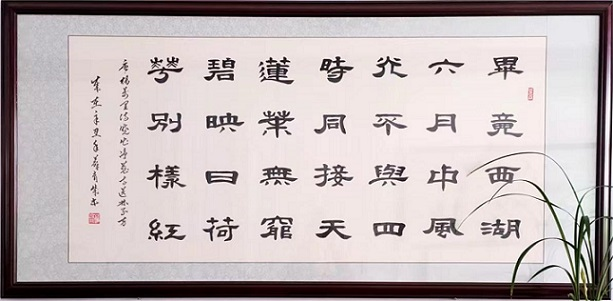 畢竟西湖
六月中風
光不與四
時同接天
蓮葉無窮
碧映日荷
花別樣紅
楊萬里詩曉出淨慈寺送林子方